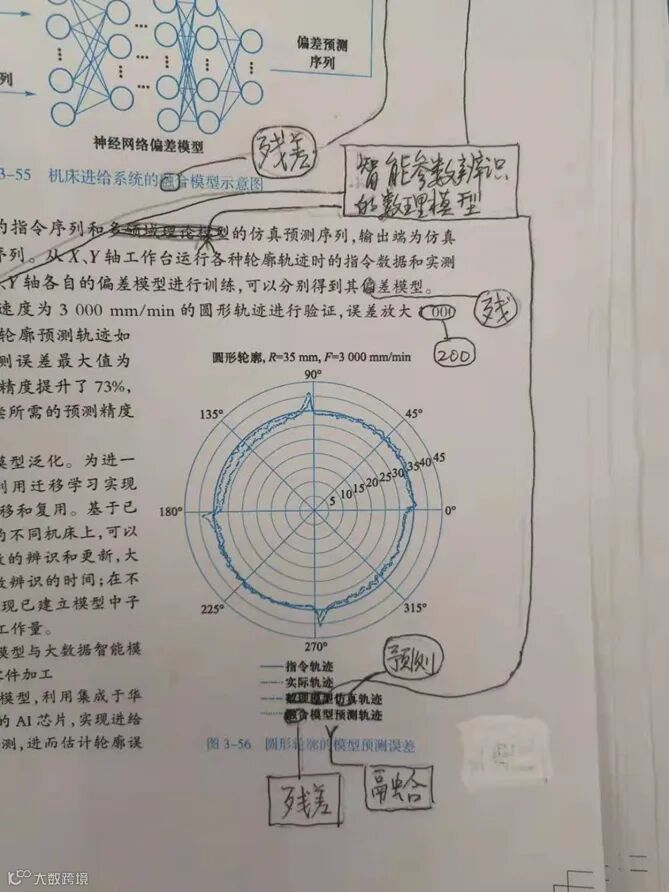 列
偏差预测
序列
神经网络偏差模型
残差
智能参数辨识
的数理模型
3-55 机床进给系统的融合模型示意图
的指令序列和多领域理论模型的仿真预测序列,输出端为仿真
序列。从X、Y轴工作台运行各种轮廓轨迹时的指令数据和实测
Y轴各自的偏差模型进行训练,可以分别得到其偏差模型。
残
速度为 3 000 mm/min 的圆形轨迹进行验证,误差放大 100
200
轮廓预测轨迹如
测误差最大值为
精度提升了 73%,
所需的预测精度
圆形轮廓, R=35 mm, F=3 000 mm/min
90°
135° 45°
5 10 15 20 25 30 35 40 45
180° 0°
225° 315°
270°
模型泛化。为进一
利用迁移学习实现
移和复用。基于已
的不同机床上,可以
数的辨识和更新,大
数辨识的时间;在不
现已建立模型中子
工作量。
模型与大数据智能模
件加工
模型,利用集成于华
的 AI 芯片,实现进给
测,进而估计轮廓误
指令轨迹
实际轨迹
数理模型仿真轨迹
融合模型预测轨迹
预测
图 3-56 圆形轮廓的模型预测误差
残差
融合
大数跨境